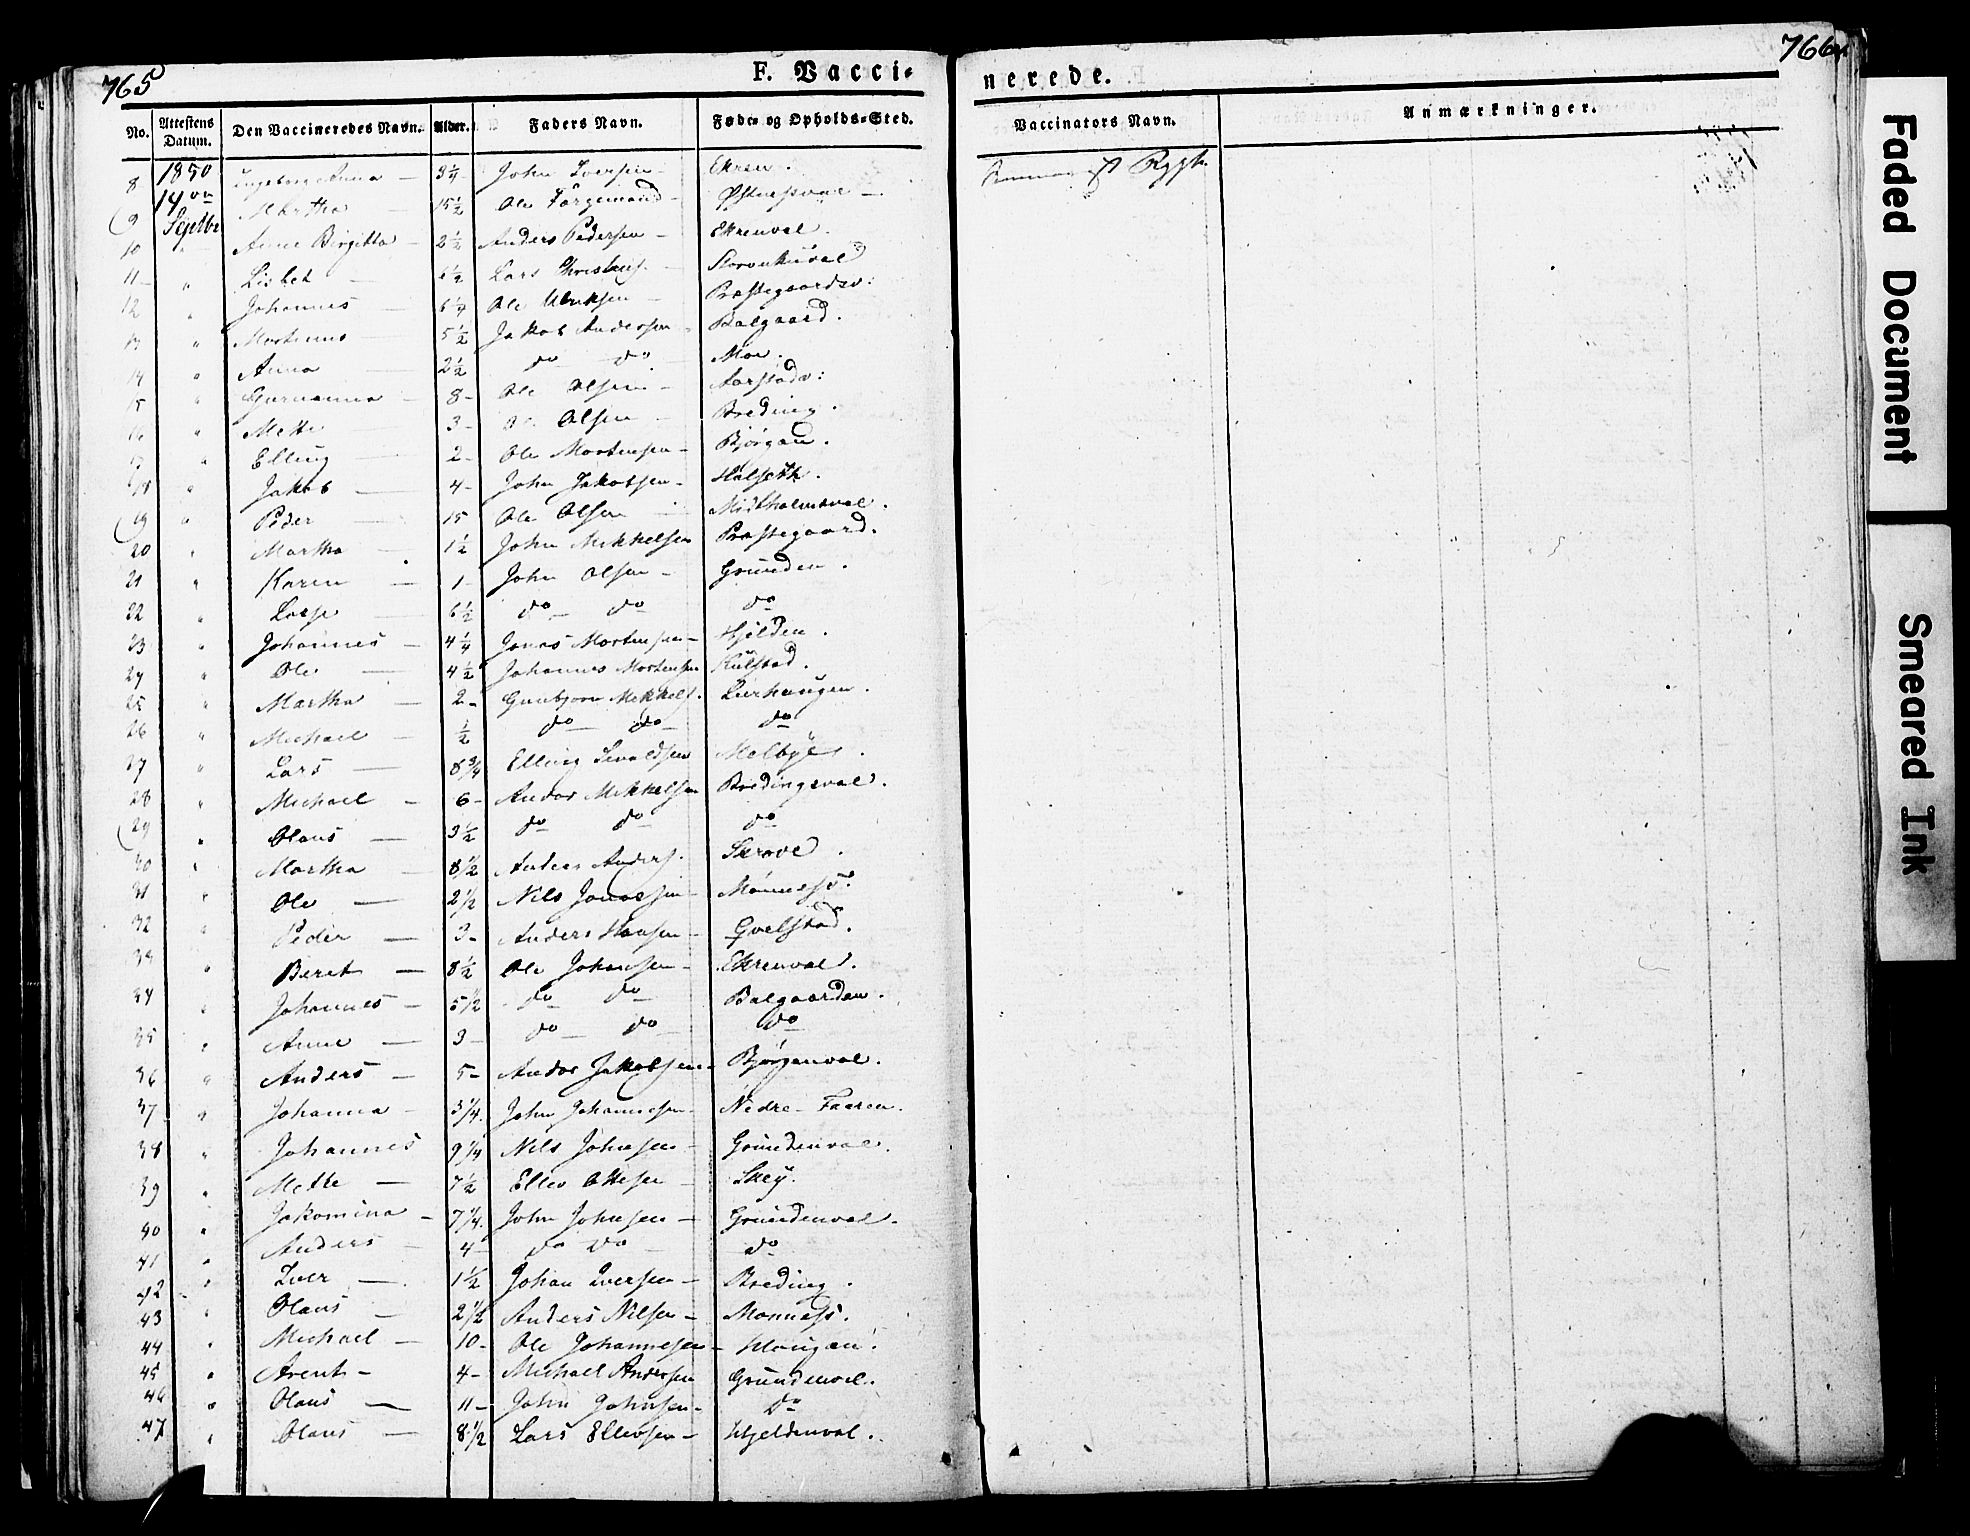 765
F. Vacci-
nerede.
766
No. Attestens Datum. Den Vaccineredes Navn. Alder. Faders Navn. Føde- og Opholds-Sted. Vaccinators Navn. Anmærkninger.
8 1850 Ingeborg Anna — 3¼ John Iversen Ekren.
9 14de Martha 15½ Ole
10 Septbr Anne Birgitta — 2½ Anders Pedersen — Ekrenval.
11 " Lisbet — Lars
12 " Johannes 6¼ Ole Præstegaardsv:
13 " 5½ Jakob Andersen Balgaard.
14 " Anna 2½ do do Moe.
15 " 8 - Ole Olsen - Aarstadv:
16 " Mette 3 - Olsen Breding.
17 " Elling 2 - Ole Mortensen - Bjørgan.
18 " Jakob — 4 - John Jakobsen - Halseth.
19 " Peder 15 Ole Olsen Midtholmsval.
20 " Martha 1½ John Mikkelsen Præstegaard.
21 " Karen — 1 - John Olsen - Grunden.
22 " 6½ do — do do
23 " Johannes - 4¼ Jonas Mortensen - Hjelden.
24 " Ole — 4½ Johannes Mortensen Kulstad.
25 " Martha — 2 - Gunbjørn Mikkels. Lurhaugen.
26 " Michael — ½ do — do — do
27 " Lars — 8¾ Elling Sivaldsen Melbye.
28 " Michael - 6 - Andor Mikkelsen Bredingsval.
29 " Olaus — 3½ do do do
30 " Martha — 8½ Anders Anders. Skrove.
31 " Ole — 2½ Nils Jonassen -
32 " Peder — 3 - Anders Hansen - Qvelstad.
33 " Beret — 8½ Ole Johansen - Ekrenval.
34 " Johannes — 5½ do do Balgaarden.
35 " Anne — 3 — do — do — do
36 " Anders — 5 - Andor Jakobsen - Bjørganval.
37 " Johanna - 3¼. John Johannesen - Nedre - Faaren.
38 " Johannes 9¼ Nils Johnsen - Grundenval.
39 " Mette — 7½ Ellev Ottesen Skey.
40 " Jakomina - 7¼. John Johnsen - Grundenval.
41 " Anders — 4 — do do — do
42 " Iver — 1½ Johan Iversen - Breding.
43 " Olaus 2½ Anders Nilsen - Monness.
44 " Michael — 10 - Ole Johannesen - Hougan.
45 " Arent - 4 - Michael Andersen Grundenval.
46 " Olaus — 11 - John Johnsen - do
47 " Olaus — 8½ Lars Ellevsen - Hjeldenval.
Faded Document
Smeared Ink